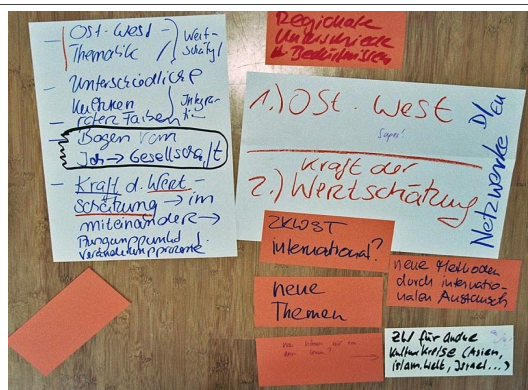 - Ost-West-
Thematik
Wert-
schätzg
- Unterschiedliche
Kulturen
Integra-
ti..
- roter Faden
- Bogen vom
Ich → Gesellschaft
- Kraft d. Wert-
schätzung → im
miteinander →
Veränderungsprozesse
Regionale
Unterschiede
in Bedürfnissen
1.) Ost-West
Super!
Kraft der
2.) Wertschätzung
Netzwerke D/EU
ZKWST
international?
neue Methoden
durch internatio-
nalen Austausch
neue
Themen
ZW für andre
Kulturkreise (Asien,
islam. Welt, Israel...)